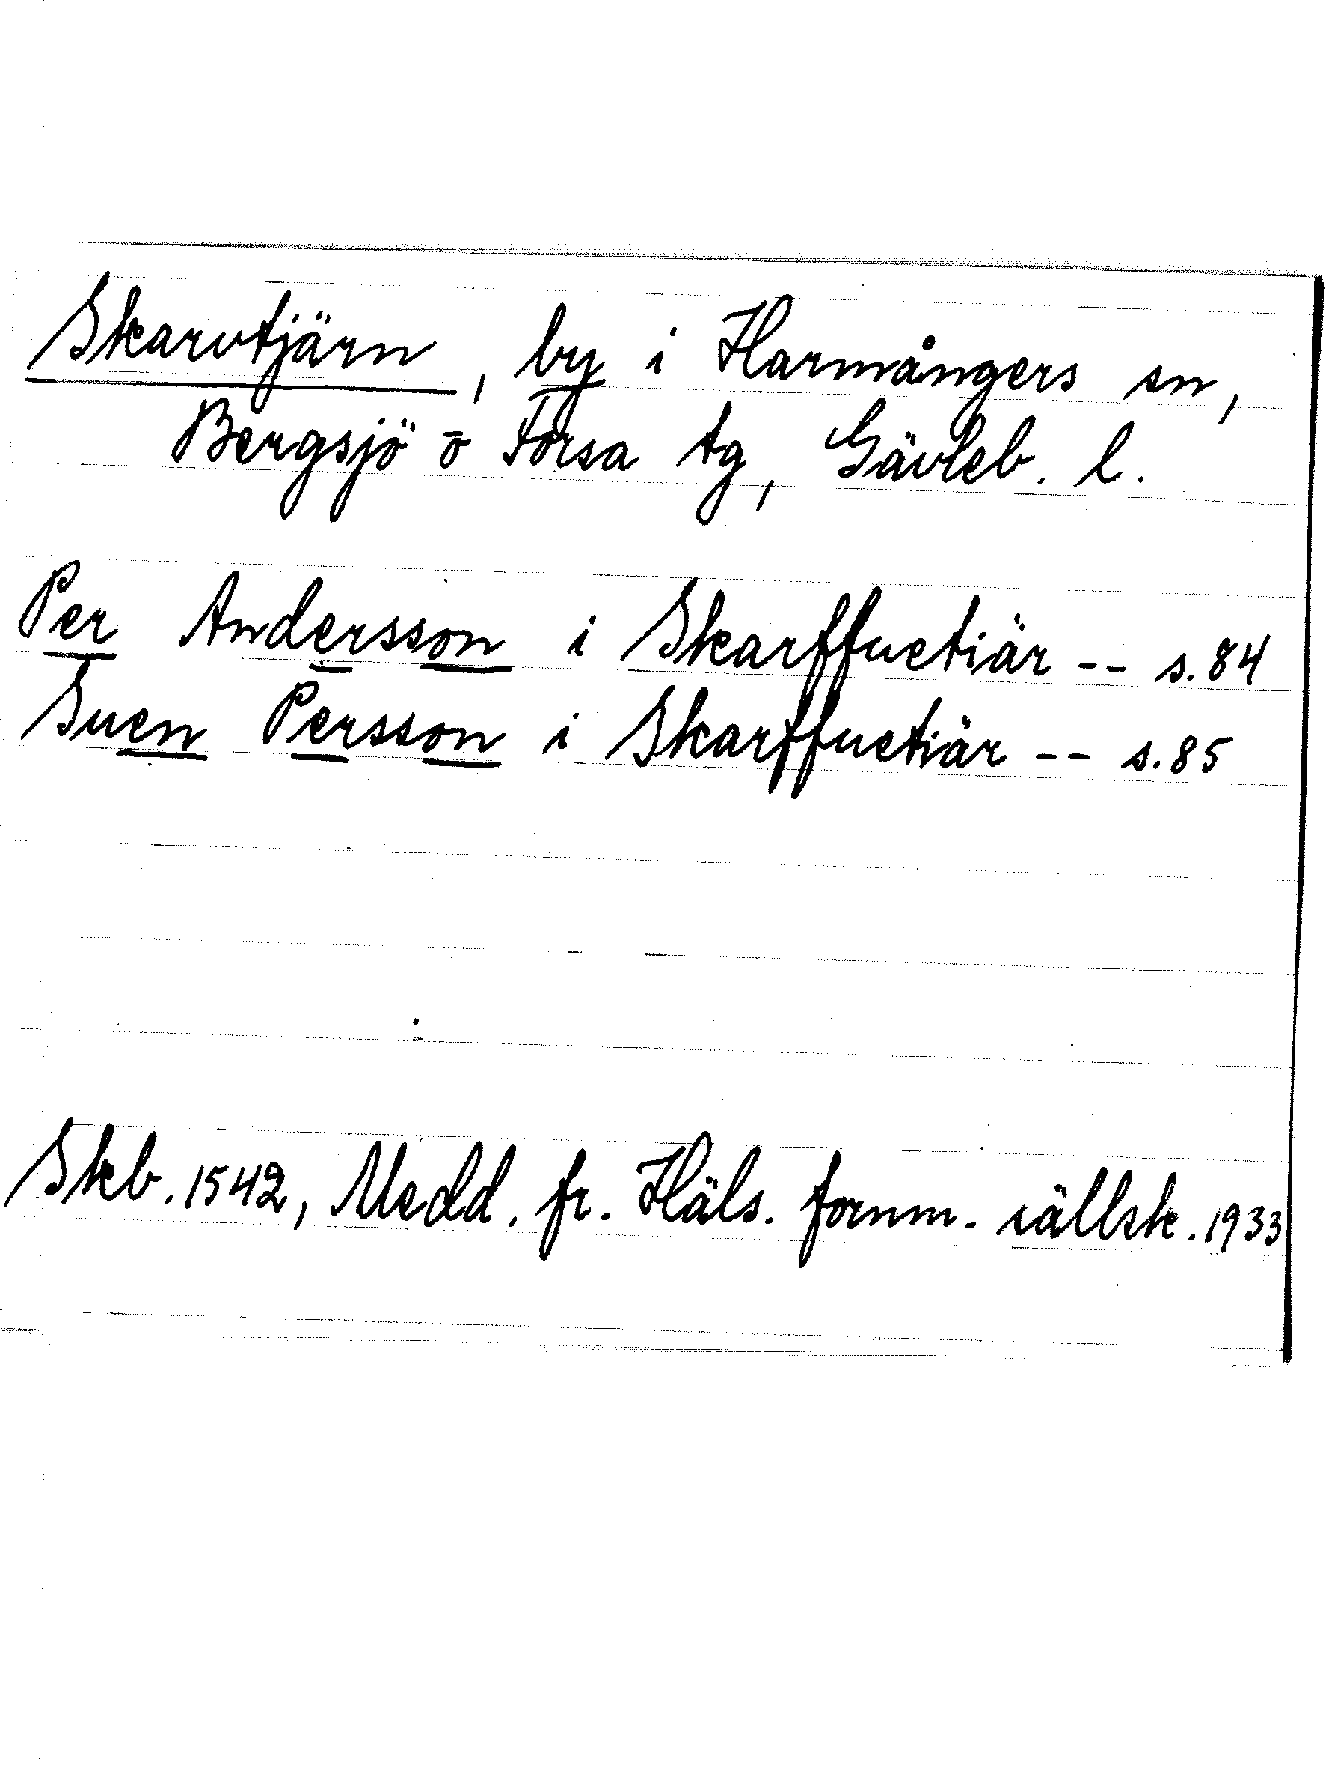 Skarvtjärn, by i Harmångers sn,
Bergsjö o Forsa tg, Gävleb. l.
Per Andersson i Skarffuetiär -- s.84
Suen Persson i Skarffuetiär -- s.85
Skb. 1542, Medd. fr. Häls. fornm. sällsk. 1933